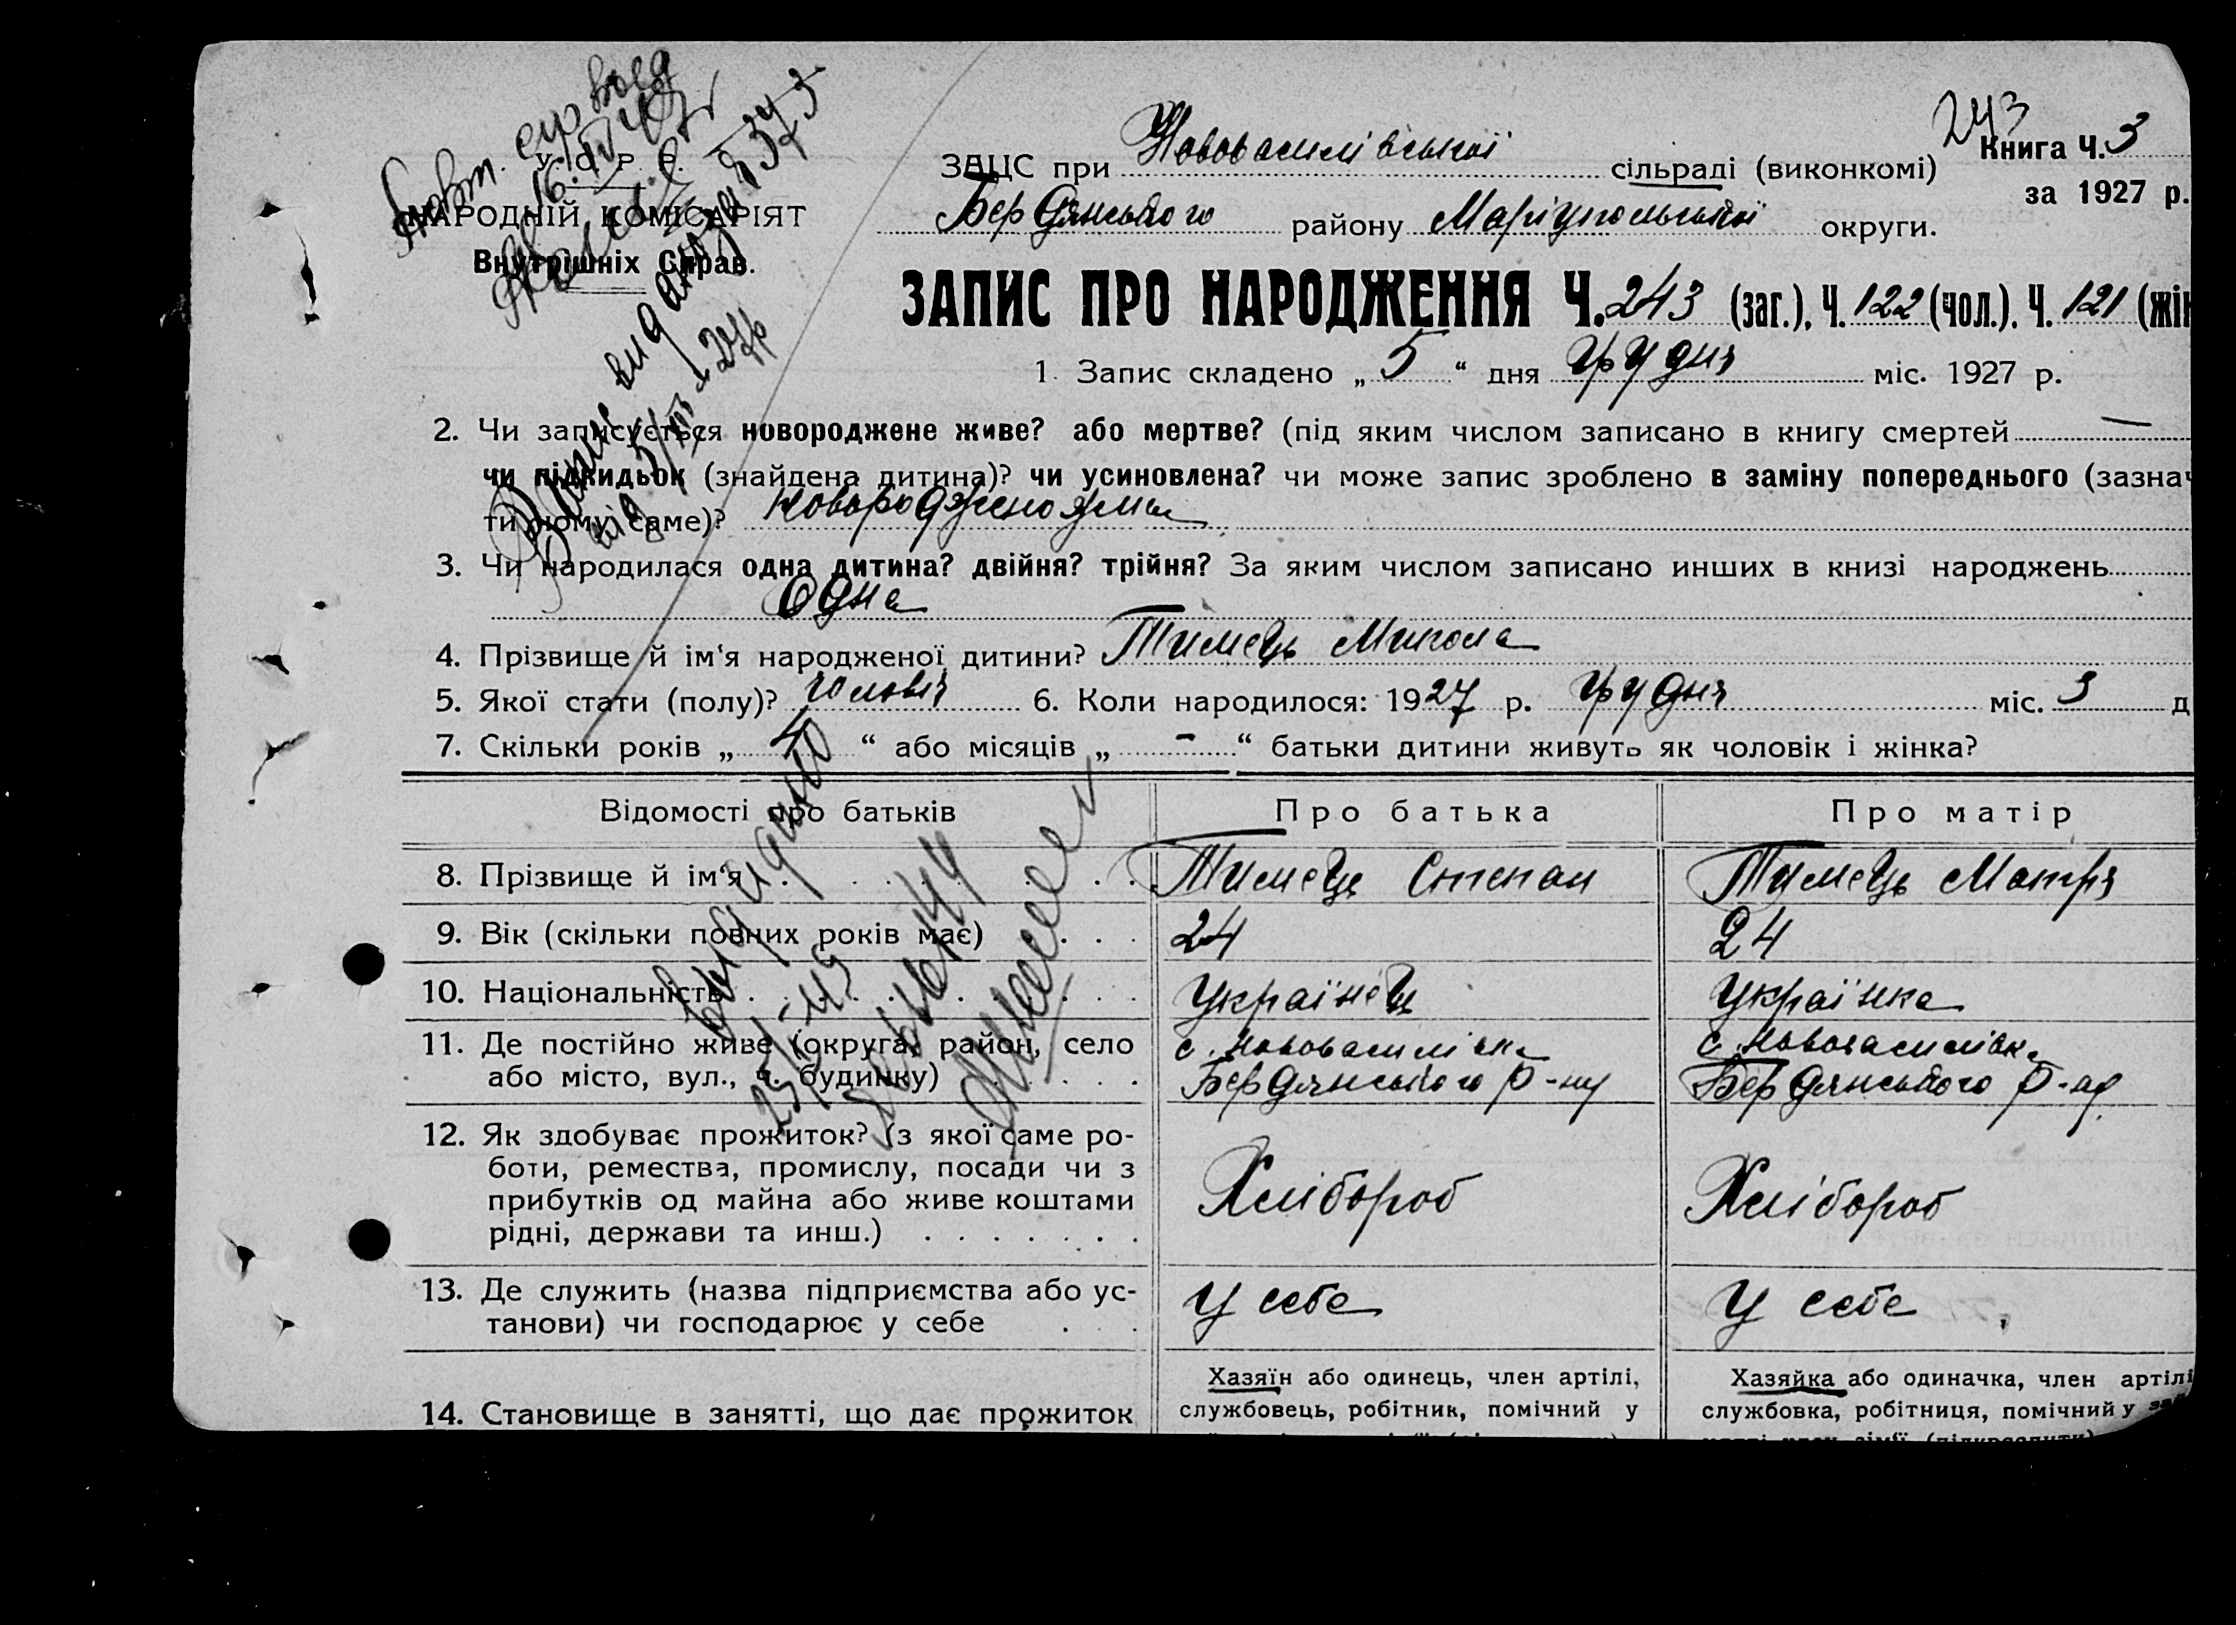 243
ЗАЦС при Нововасилівської сільраді (виконкомі) Книга Ч. 3
за 1927 р.
У. С. Р. Р.
НАРОДНІЙ КОМІСАРІЯТ
Внутрішніх Справ.
Бердянського району Маріупольської округи.
ЗАПИС ПРО НАРОДЖЕННЯ Ч. 243 (заг.), Ч. 122 (чол.). Ч. 121 (жін
1. Запис складено „ 5 “ дня грудня міс. 1927 р.
2. Чи записується новороджене живе? або мертве? (під яким числом записано в книгу смертей —
чи підкидьок (знайдена дитина)? чи усиновлена? чи може запис зроблено в заміну попереднього (зазнач
ти чому саме)?
3. Чи народилася одна дитина? двійня? трійня? За яким числом записано инших в книзі народжень
Одна
4. Прізвище й ім'я народженої дитини? Тимець Микола
5. Якої стати (полу)? чоловіч 6. Коли народилося: 1927 р. грудня міс. 3 д
7. Скільки років „ 4 “ або місяців „ - “ батьки дитини живуть як чоловік і жінка?
Відомості про батьків Про батька Про матір
8. Прізвище й ім'я Тимець Степан Тимець Мотря
9. Вік (скільки повних років має) 24 24
10. Національність Українець Українка
11. Де постійно живе (округа, район, село с. Нововасилівка с. Нововасилівка
або місто, вул., ч. будинку) Бердянського р-ну Бердянського р-ну
12. Як здобуває прожиток? (з якої саме ро-
боти, ремества, промислу, посади чи з
прибутків од майна або живе коштами Хлібороб Хлібороб
рідні, держави та инш.)
13. Де служить (назва підприємства або ус- У себе У себе
танови) чи господарює у себе
Хазяїн або одинець, член артілі, Хазяйка або одиначка, член артілі
14. Становище в занятті, що дає прожиток службовець, робітник, помічний у службовка, робітниця, помічний у за
видано